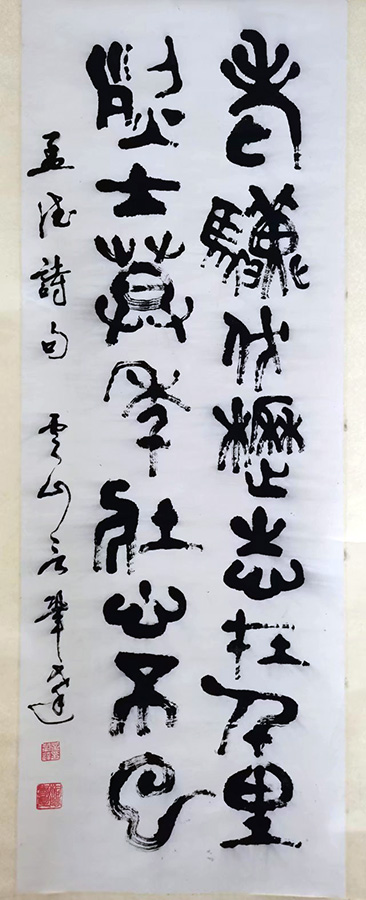 老驥伏櫪志在千里
烈士莫年壯心不已
孟德詩句 雲山